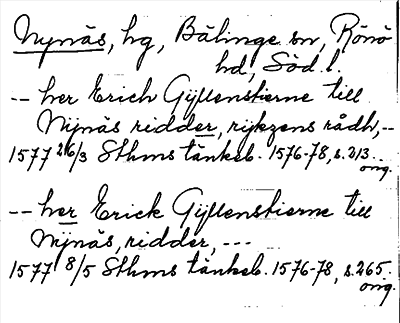 Nynäs, hg, Bälinge sn, Rönö
hd, Söd.l.
-- her Erich Gyllenstierne till
Nynäs ridder, rijkzens rådh, --
1577 26/3 Sthms tänkeb. 1576-78, s.213.
orig.
-- her Erick Gyllenstierne till
Nynäs, ridder, ---
1577 8/5 Sthms tänkeb. 1576-78, s.265.
orig.